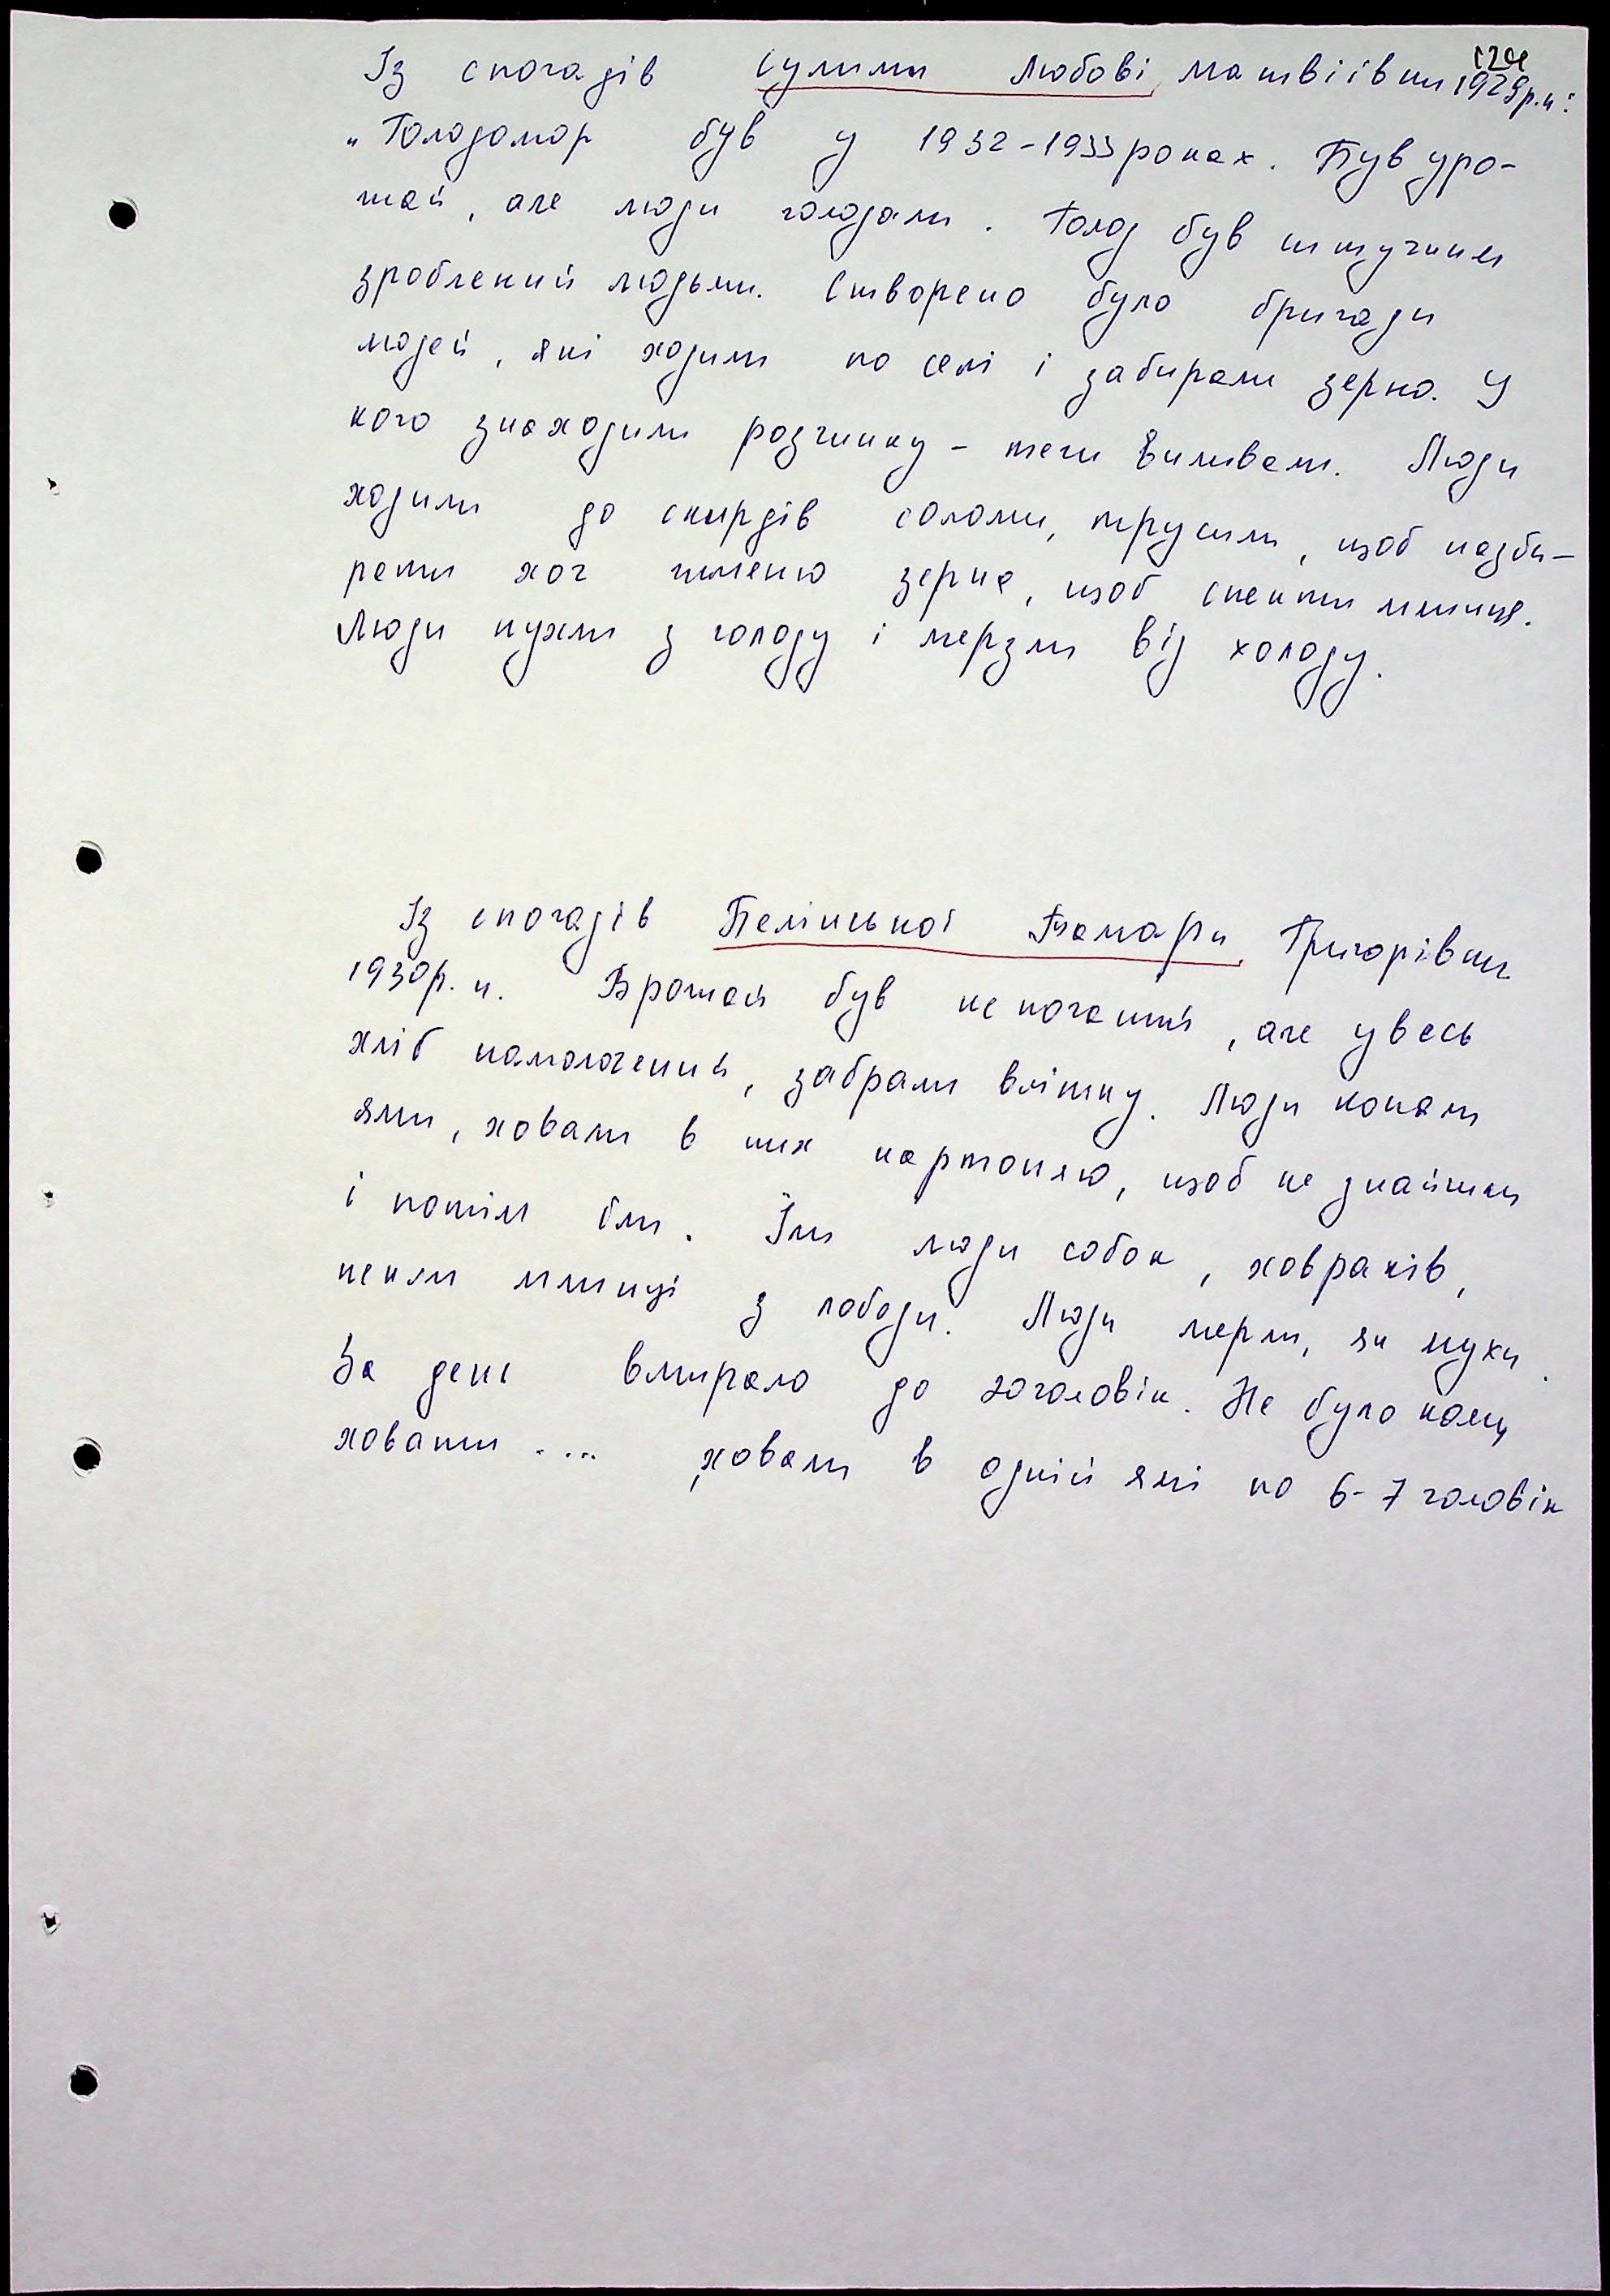 Із спогадів Сулими Любові Матвіївни 1929 р.н:
„Голодомор був у 1932-1933 роках. Був уро-
жай, але люди голодали. Голод був штучним
зроблений людьми. Створено було бригади
людей, які ходили по селі і забирали зерно. У
кого знаходили розчинку - теж виливали. Люди
ходили до скирдів соломи, трусили, щоб назби-
рати хоч жменю зерна, щоб спекти млинця.
Люди пухли з голоду і мерзли від холоду.
Із спогадів Белінської Тамари Григорівни
1930 р.н. Врожай був непоганий, але увесь
хліб намолочений, забрали влітку. Люди копали
ями, ховали в них картоплю, щоб не знайшли
і потім їли. Їли люди собак, ховрахів,
пекли млинці з лободи. Люди мерли, як мухи.
За день вмирало до 20 чоловік. Не було кому
ховати .... ховали в одній ямі по 6-7 чоловік